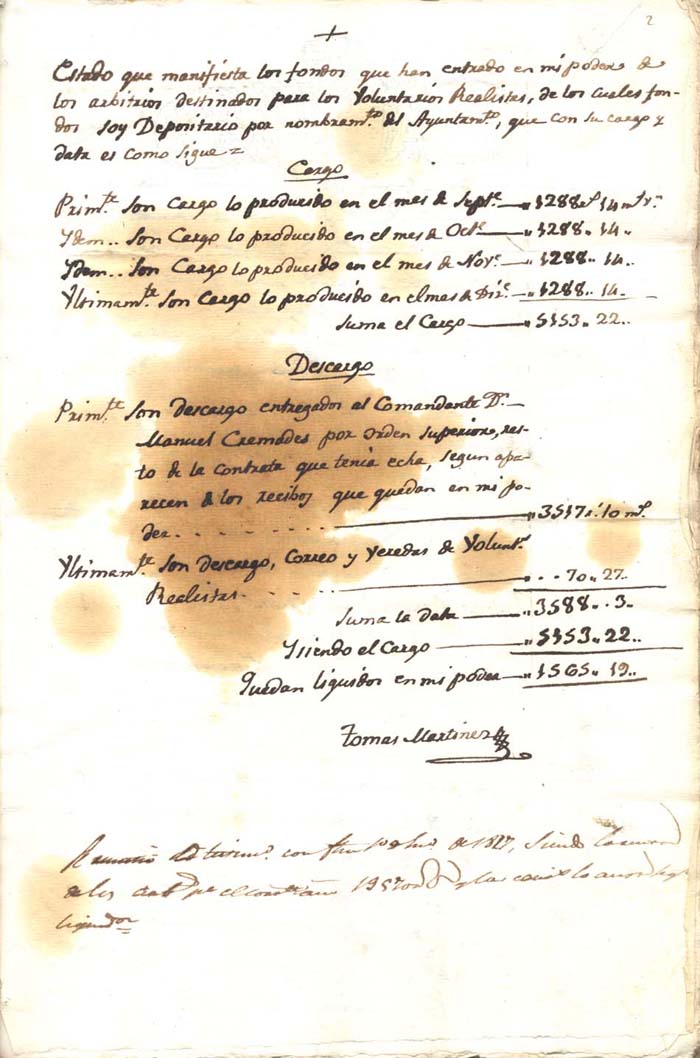 2
+
Estado que manifiesta los fondos que han entrado en mi poder de
los arbitrios destinados para los Voluntarios Realistas, de los cuales fon-
dos soy Depositario por nombram.to del Ayuntam.to, que con su cargo y
data es como sigue=
Cargo
Prim.te Son Cargo lo producido en el mes de Sept.e — „1288 r.s 14 m.s v.n
Ydem.. Son Cargo lo producido en el mes de Oct.e — „1288„ 14„
Ydem.. Son Cargo lo producido en el mes de Nov.e — „1288„ 14..
Ultimam.te Son Cargo lo producido en el mes de Di.e — „1288„ 14..
Suma el Cargo — „5153„ 22..
Descargo
Prim.te Son descargo entregados al Comandante D.n
Manuel Cremades por orden superior, res-
to de la contrata que tenia echa, segun apa-
recen de los recibos que quedan en mi po-
der. . . . . . — „3517 r.s 10 m.s
Ultimam.te Son descargo, Correo y Veredas de Volunt.s
Realistas. . . . . . . . 70„ 27..
Suma la data — „3588„ . 3..
Ysiendo el Cargo — „5153„ 22..
Quedan liquidos en mi poder — „1565„ 19..
Tomas Martinez
de 1827, siendo